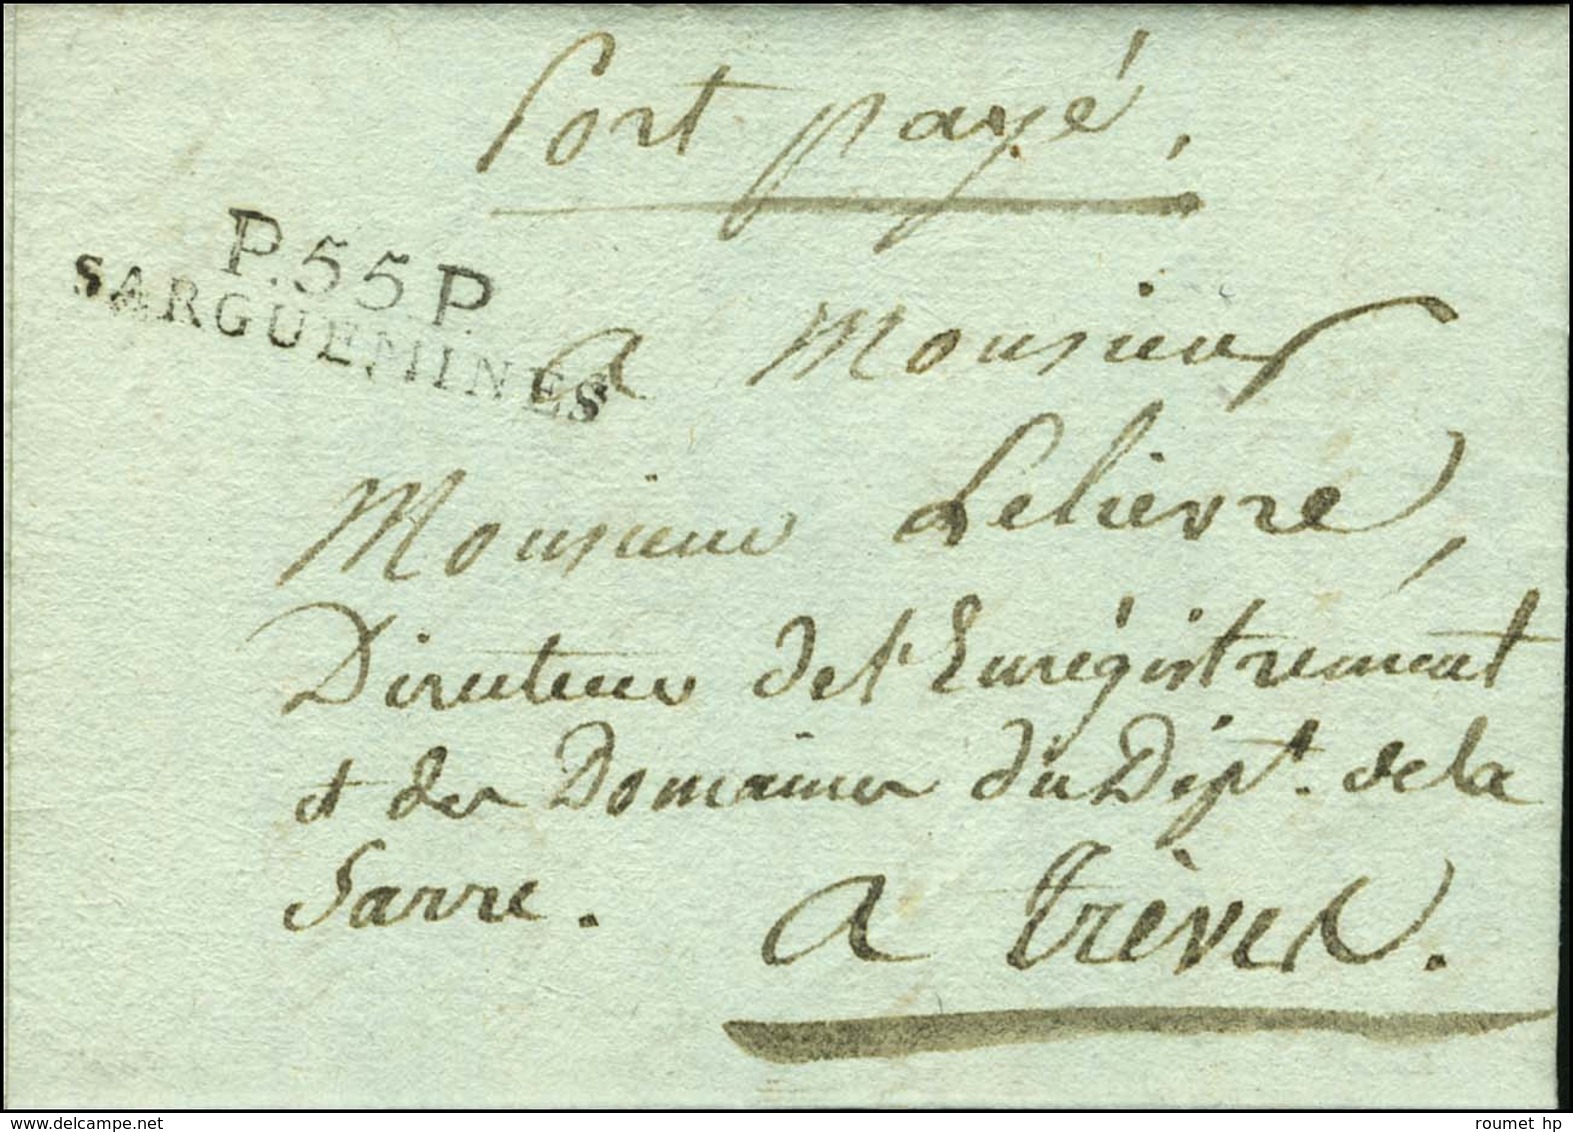 Port payé.
P.55.P.
SARGUEMINES
a Monsieur
Monsieur Lelievre,
Directeur de l'Enrégistrement
et des Domaines du Dépt. de la
Sarre.
A Trèves.
roumet hp